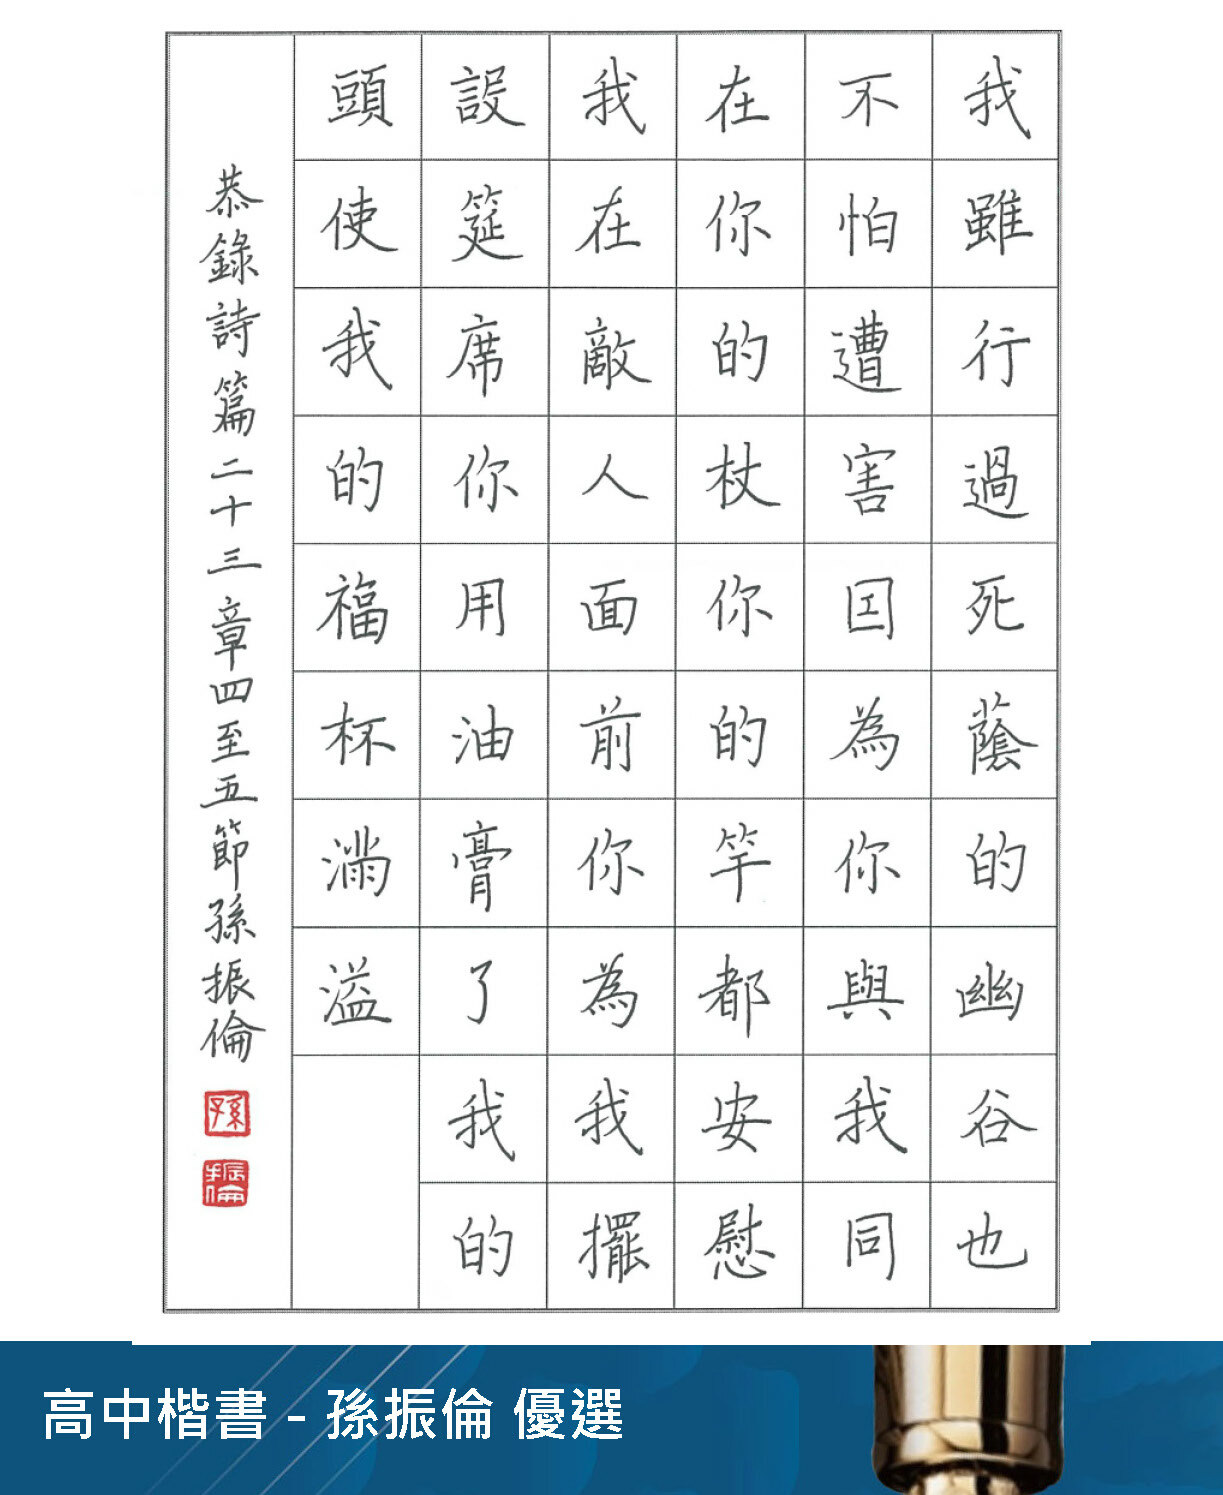 我雖行過死蔭的幽谷也
不怕遭害因為你與我同
在你的杖你的竿都安慰
我在敵人面前你為我擺
設筵席你用油膏了我的
頭使我的福杯滿溢
恭錄詩篇二十三章四至五節孫振倫
孫
振倫
高中楷書 - 孫振倫 優選